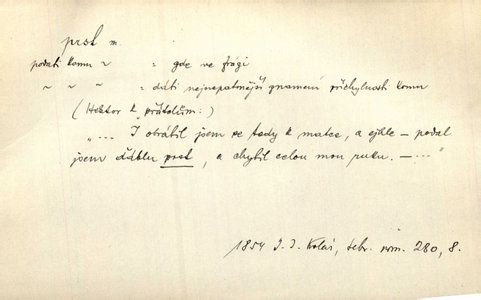 prst m.
podati komu ~ = gde ve frági
~ ~ ~ = dáti nejnepatrnější znamení příchylnosti komu
(Hektor k přátelům:)
„... I obrátil jsem se tedy k matce, a ejhle – podal
jsem ďáblu prst, a chytil celou mou ruku. – ..."
1854 J. J. Kolár, sebr. rom. 280, 8.